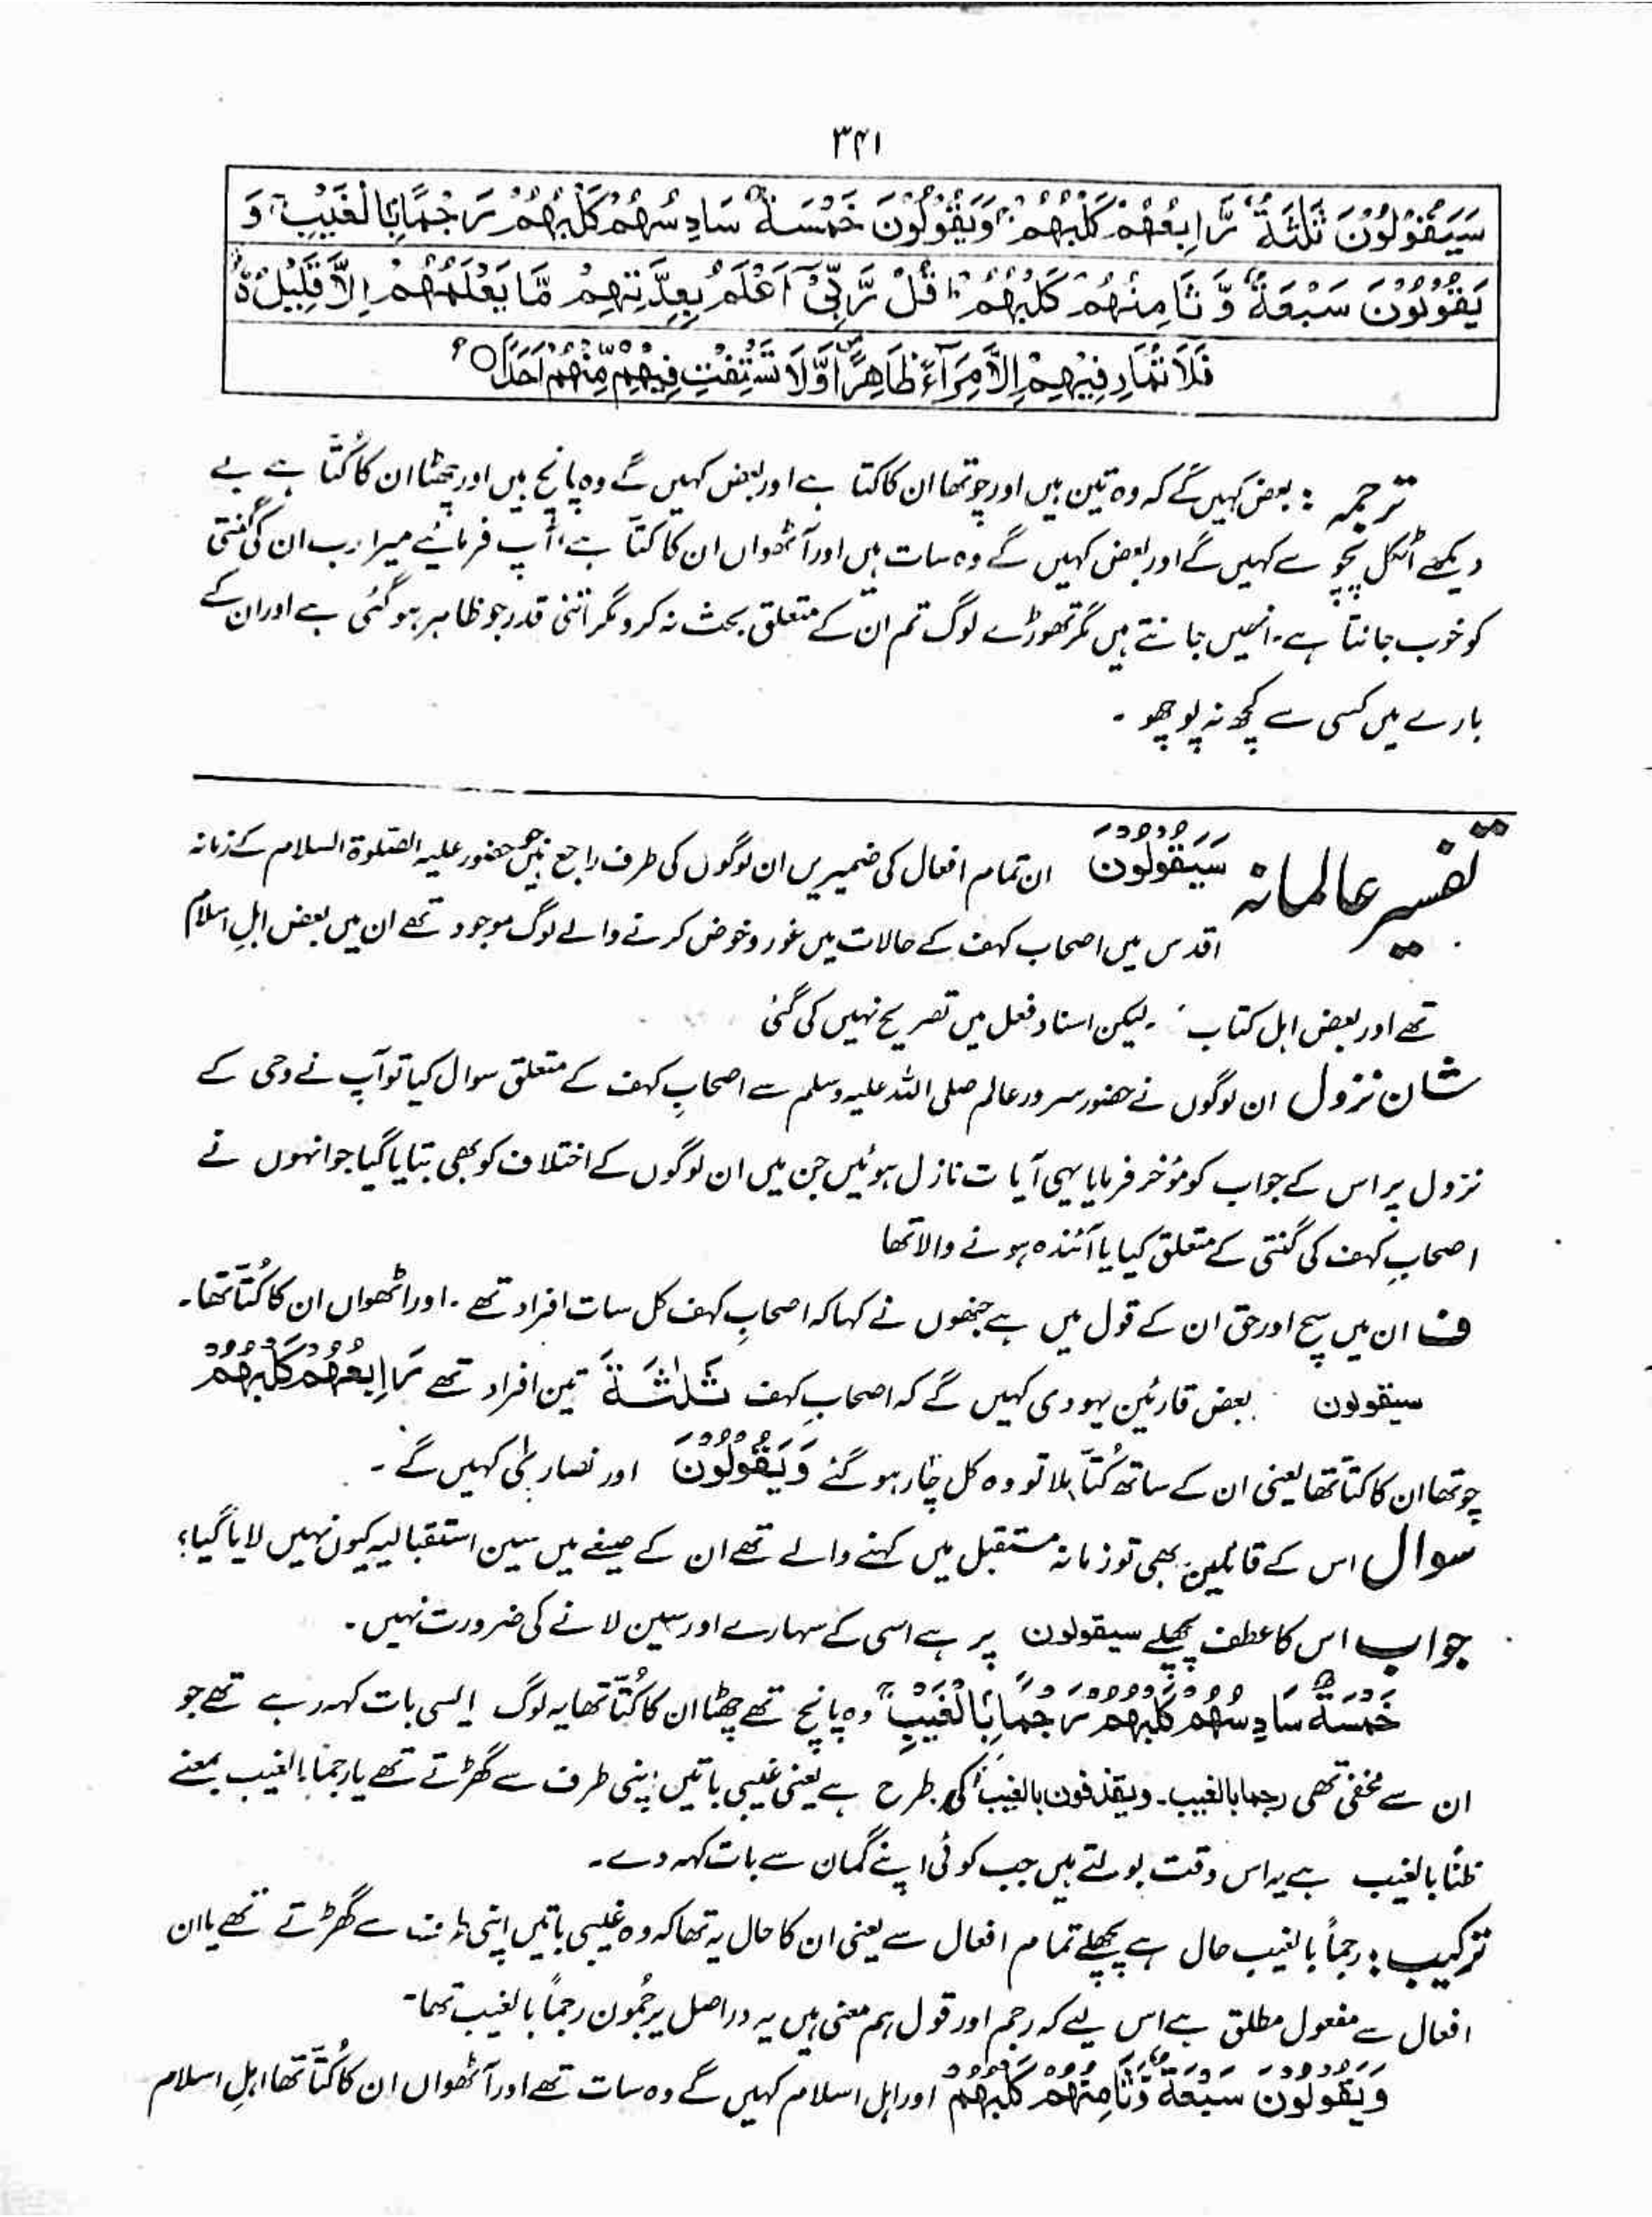 ۳۴۱
سَيَقُوْلُوْنَ ثَلٰثَةٌ رَّابِعُهُمْ كَلْبُهُمْ ۚ وَيَقُوْلُوْنَ خَمْسَةٌ سَادِسُهُمْ كَلْبُهُمْ رَجْمًۢا بِالْغَيْبِ ۚ وَ
يَقُوْلُوْنَ سَبْعَةٌ وَّ ثَامِنُهُمْ كَلْبُهُمْ ؕ قُلْ رَّبِّيْٓ اَعْلَمُ بِعِدَّتِهِمْ مَّا يَعْلَمُهُمْ اِلَّا قَلِيْلٌ ۫
فَلَا تُمَارِ فِيْهِمْ اِلَّا مِرَآءً ظَاهِرًا وَّلَا تَسْتَفْتِ فِيْهِمْ مِّنْهُمْ اَحَدًا ۝
ترجمہ : بعض کہیں گے کہ وہ تین ہیں اور چوتھا ان کا کتا ہے اور بعض کہیں گے وہ پانچ ہیں اور چھٹا ان کا کُتّا ہے بے
دیکھے اٹکل پچو سے کہیں گے اور بعض کہیں گے وہ سات ہیں اور آٹھواں ان کا کتّا ہے، آپ فرمائیے میرا رب ان کی گنتی
کو خوب جانتا ہے۔ انھیں جانتے ہیں مگر تھوڑے لوگ تم ان کے متعلق بحث نہ کرو مگر اتنی قدر جو ظاہر ہو گئی ہے اور ان کے
بارے میں کسی سے کچھ نہ پوچھو ۔
تفسیر عالمانہ سَيَقُوْلُوْنَ ان تمام افعال کی ضمیریں ان لوگوں کی طرف راجع ہیں جو حضور علیہ الصّلوٰۃ السلام کے زمانہ
اقدس میں اصحاب کہف کے حالات میں غور و خوض کرنے والے لوگ موجود تھے ان میں بعض اہلِ اسلام
تھے اور بعض اہل کتاب ۔ لیکن اسناد فعل میں تصریح نہیں کی گئی
شان نزول ان لوگوں نے حضور سرور عالم صلی اللہ علیہ وسلم سے اصحابِ کہف کے متعلق سوال کیا تو آپ نے وحی کے
نزول پر اس کے جواب کو مؤخر فرمایا یہی آیات نازل ہوئیں جن میں ان لوگوں کے اختلاف کو بھی بتایا گیا جو انہوں نے
اصحابِ کہف کی گنتی کے متعلق کیا یا آئندہ ہونے والا تھا
ف ان میں سچ اور حق ان کے قول میں ہے جنھوں نے کہا کہ اصحابِ کہف کل سات افراد تھے ۔ اور اٹھواں ان کا کُتّا تھا۔
سیقولون بعض قارئین یہودی کہیں گے کہ اصحابِ کہف ثَلٰثَةٌ تین افراد تھے رَابِعُهُمْ كَلْبُهُمْ
چوتھا ان کا کتّا تھا یعنی ان کے ساتھ کُتّا ملا تو وہ کل چار ہو گئے وَيَقُوْلُوْنَ اور نصاریٰ کہیں گے ۔
سوال اس کے قائلین بھی تو زمانہ مستقبل میں کہنے والے تھے ان کے صیغے میں سین استقبالیہ کیوں نہیں لایا گیا؟
جواب اس کا عطف پچھلے سیقولون پر ہے اسی کے سہارے اور سین لانے کی ضرورت نہیں ۔
خَمْسَةٌ سَادِسُهُمْ كَلْبُهُمْ رَجْمًۢا بِالْغَيْبِ ۚ وہ پانچ تھے چھٹا ان کا کُتّا تھا یہ لوگ ایسی بات کہہ رہے تھے جو
ان سے مخفی تھی رجما بالغیب۔ ویقذفون بالغیب کی طرح ہے یعنی غیبی باتیں اپنی طرف سے گھڑتے تھے یا رجما بالغیب بمعنے
ظنًا بالغیب ہے یہ اس وقت بولتے ہیں جب کوئی اپنے گمان سے بات کہہ دے۔
ترکیب : رجماً بالغیب حال ہے پچھلے تمام افعال سے یعنی ان کا حال یہ تھا کہ وہ غیبی باتیں اپنی طرف سے گھڑتے تھے یا ان
افعال سے مفعول مطلق ہے اس لیے کہ رجم اور قول ہم معنی ہیں یہ دراصل یرجُمون رجماً بالغیب تھا۔
وَيَقُوْلُوْنَ سَبْعَةٌ وَّثَامِنُهُمْ كَلْبُهُمْ اور اہل اسلام کہیں گے وہ سات تھے اور آٹھواں ان کا کُتّا تھا اہلِ اسلام